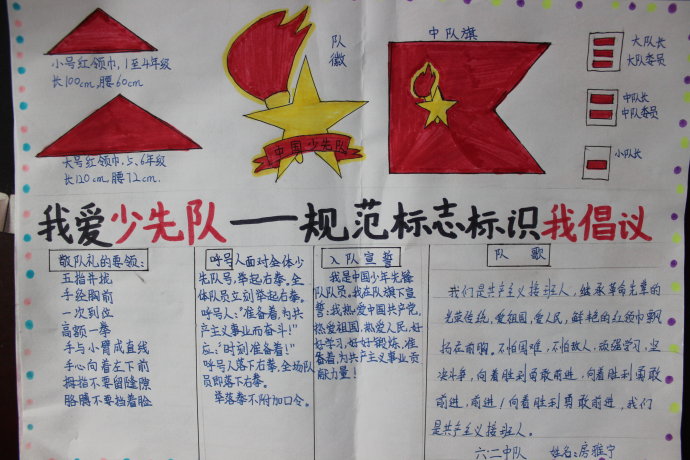 小号红领巾,1至4年级
长100cm,腰60cm
大号红领巾,5、6年级
长120cm,腰72cm.
队
徽
中国少先队
中队旗
大队长
大队委员
中队长
中队委员
小队长
我爱少先队——规范标志标识我倡议
敬队礼的要领:
五指并拢
手经胸前
一次到位
高额一拳
手与小臂成直线
手心向着左下前
拇指不要留缝隙
胳膊不要挡着脸
呼号人面对全体少
先队号,举起右拳。全
体队员立刻举起右拳。
呼号人:"准备着,为共
产主义事业而奋斗!"
应:"时刻准备着!"
呼号人落下右拳,全场队
员即落下右拳.
举落拳不附加口令。
入队宣誓
我是中国少年先锋
队队员。我在队旗下宣
誓:我热爱中国共产党,
热爱祖国,热爱人民,好
好学习,好好锻炼,准
备着,为共产主义事业贡
献力量!
队 歌
我们是共产主义接班人,继承革命先辈的
光荣传统,爱祖国,爱人民,鲜艳的红领巾飘
扬在前胸。不怕困难,不怕敌人,顽强学习,坚
决斗争,向着胜利勇敢前进,向着胜利勇敢
前进,前进!向着胜利勇敢前进,我们
是共产主义接班人。
六·二中队 姓名:房雅宁